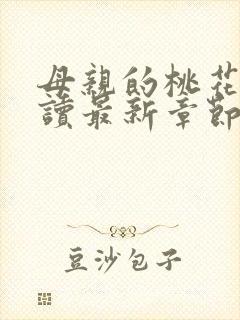 母親的桃花
讀最新章節
豆沙包子